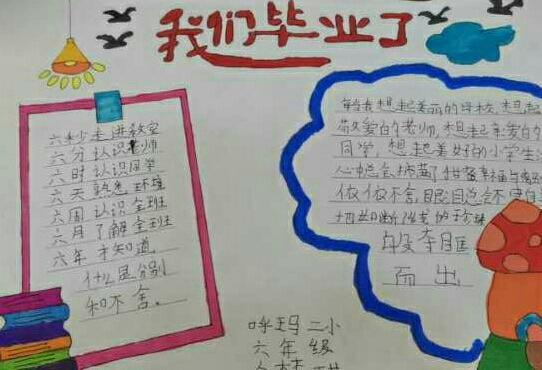 我们毕业了
六秒走进教室
六分认识老师
六时认识同学
六天熟悉环境
六周认识全班
六月了解全班
六年才知道
什么是分别
和不舍。
每当我想起美丽的母校,想起
敬爱的老师,想起亲爱的
同学,想起美好的小学生
心中总会
依依不舍,眼目总会不
般夺眶
而出
呼玛二小
六年级